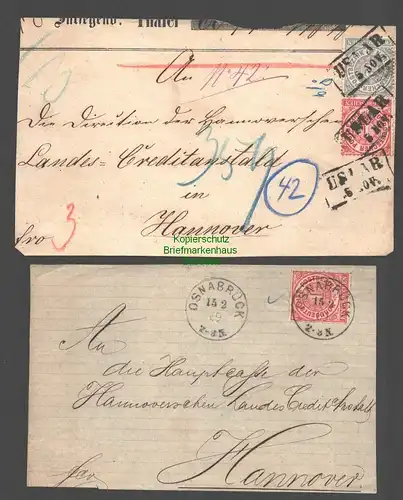 Inliegend. Thaler
USLAR
5 NOV.
An No 42.
USLAR
5 NOV.
Die Direction der Hannoverschen
Landes-Creditanstalt
USLAR
5 NOV.
in
42
Hannover
fro
3
Kopierschutz
Briefmarkenhaus
OSNABRÜCK
15 2
69
2-3 N.
OSNABRÜCK
15 2
2-3 N.
An
die Hauptcasse der
Hannoverschen Landes Credit Anstalt
Hannover.